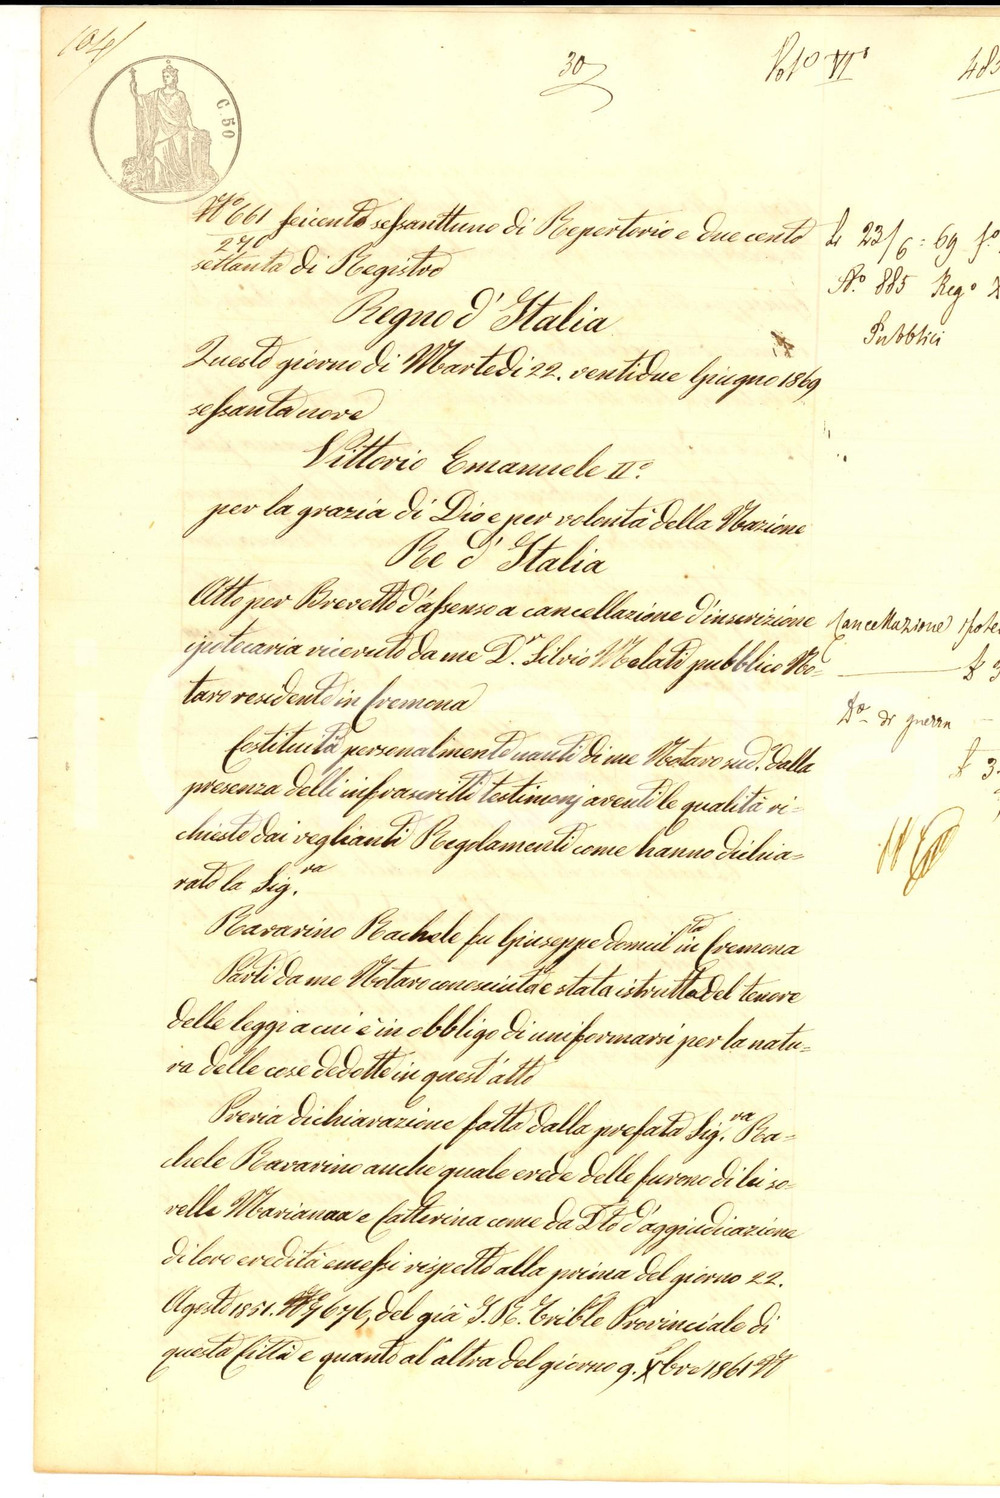 104
C. 50
30
Pol° VI°
483
N° 661 seicento sessanttuno di Repertorio e due cento
270
settanta di Registro
Regno d' Italia
Questo giorno di Martedi 22. ventidue Giugno 1869
sessanta nove
Vittorio Emanuele II°.
per la grazia di Dio e per volontà della Nazione
Re d' Italia
Atto per Brevetto d'assenso a cancellazione d'inscrizione
ipotecaria ricevuto da me D.r Silvio Melati pubblico No=
taro residente in Cremona
Costituita personalmente nanti di me Notaro sud.° dalla
presenza delli infrascritti testimonj aventi le qualità ri=
chieste dai veglianti Regolamenti come hanno dichia=
rato la Sig.ra
Ravarino Rachele fu Giuseppe domicil.ta in Cremona
Parti da me Notaro conosciuta e stata istrutta del tenore
delle leggi a cui è in obbligo di uniformarsi per la natu=
ra delle cose dedotte in quest' atto
Previa dichiarazione fatta dalla prefata Sig.ra Ra=
chele Ravarino anche quale erede delle furono di lei so=
relle Marianna e Catterina come da D.to d'aggiudicazione
di loro eredità emessi rispetto alla prima del giorno 22.
Agosto 1851. N° 7676, del già I. R. Trib.le Provinciale di
questa Città e quanto al' altra del giorno 9. Xbre 1861 N°
Li 23/6 = 69 f.°
N.° 885 Reg°
Pubblici
Cancellazione Ipote
D° di guerra